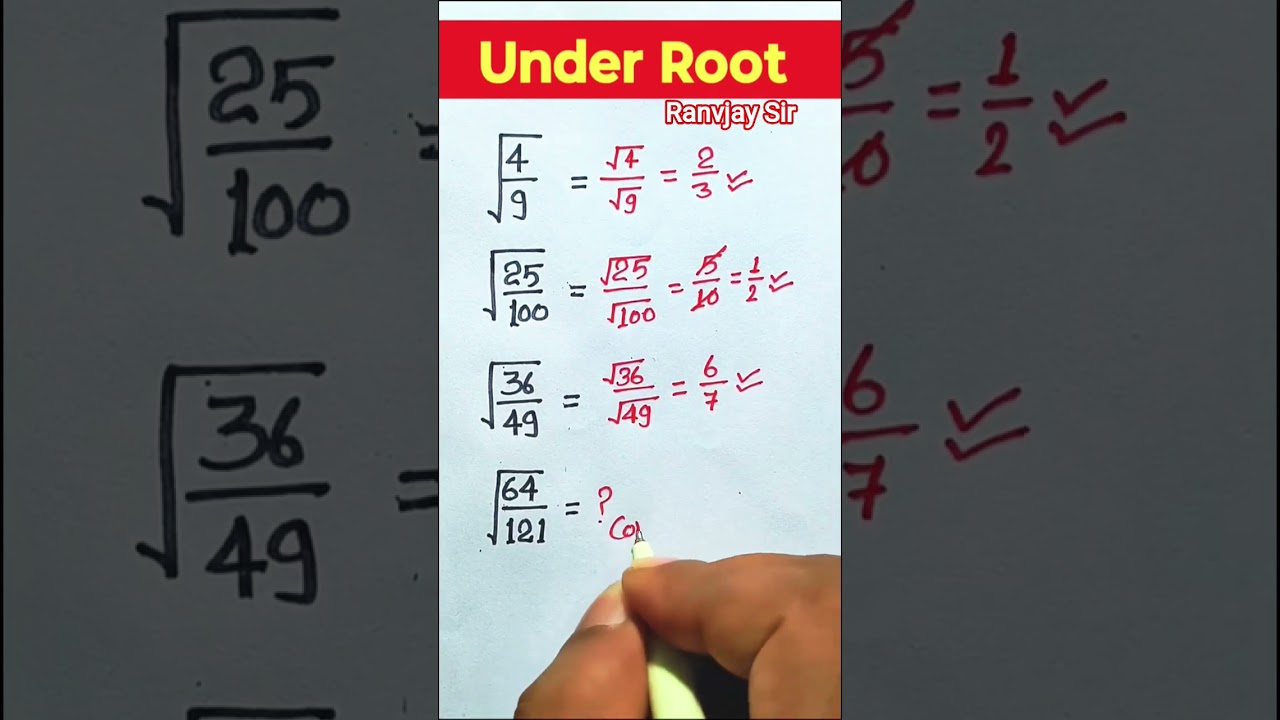 Under Root
Ranvjay Sir
√(4/9) = √4/√9 = 2/3 ✓
√(25/100) = √25/√100 = 5/10 = 1/2 ✓
√(36/49) = √36/√49 = 6/7 ✓
√(64/121) = ?
Co